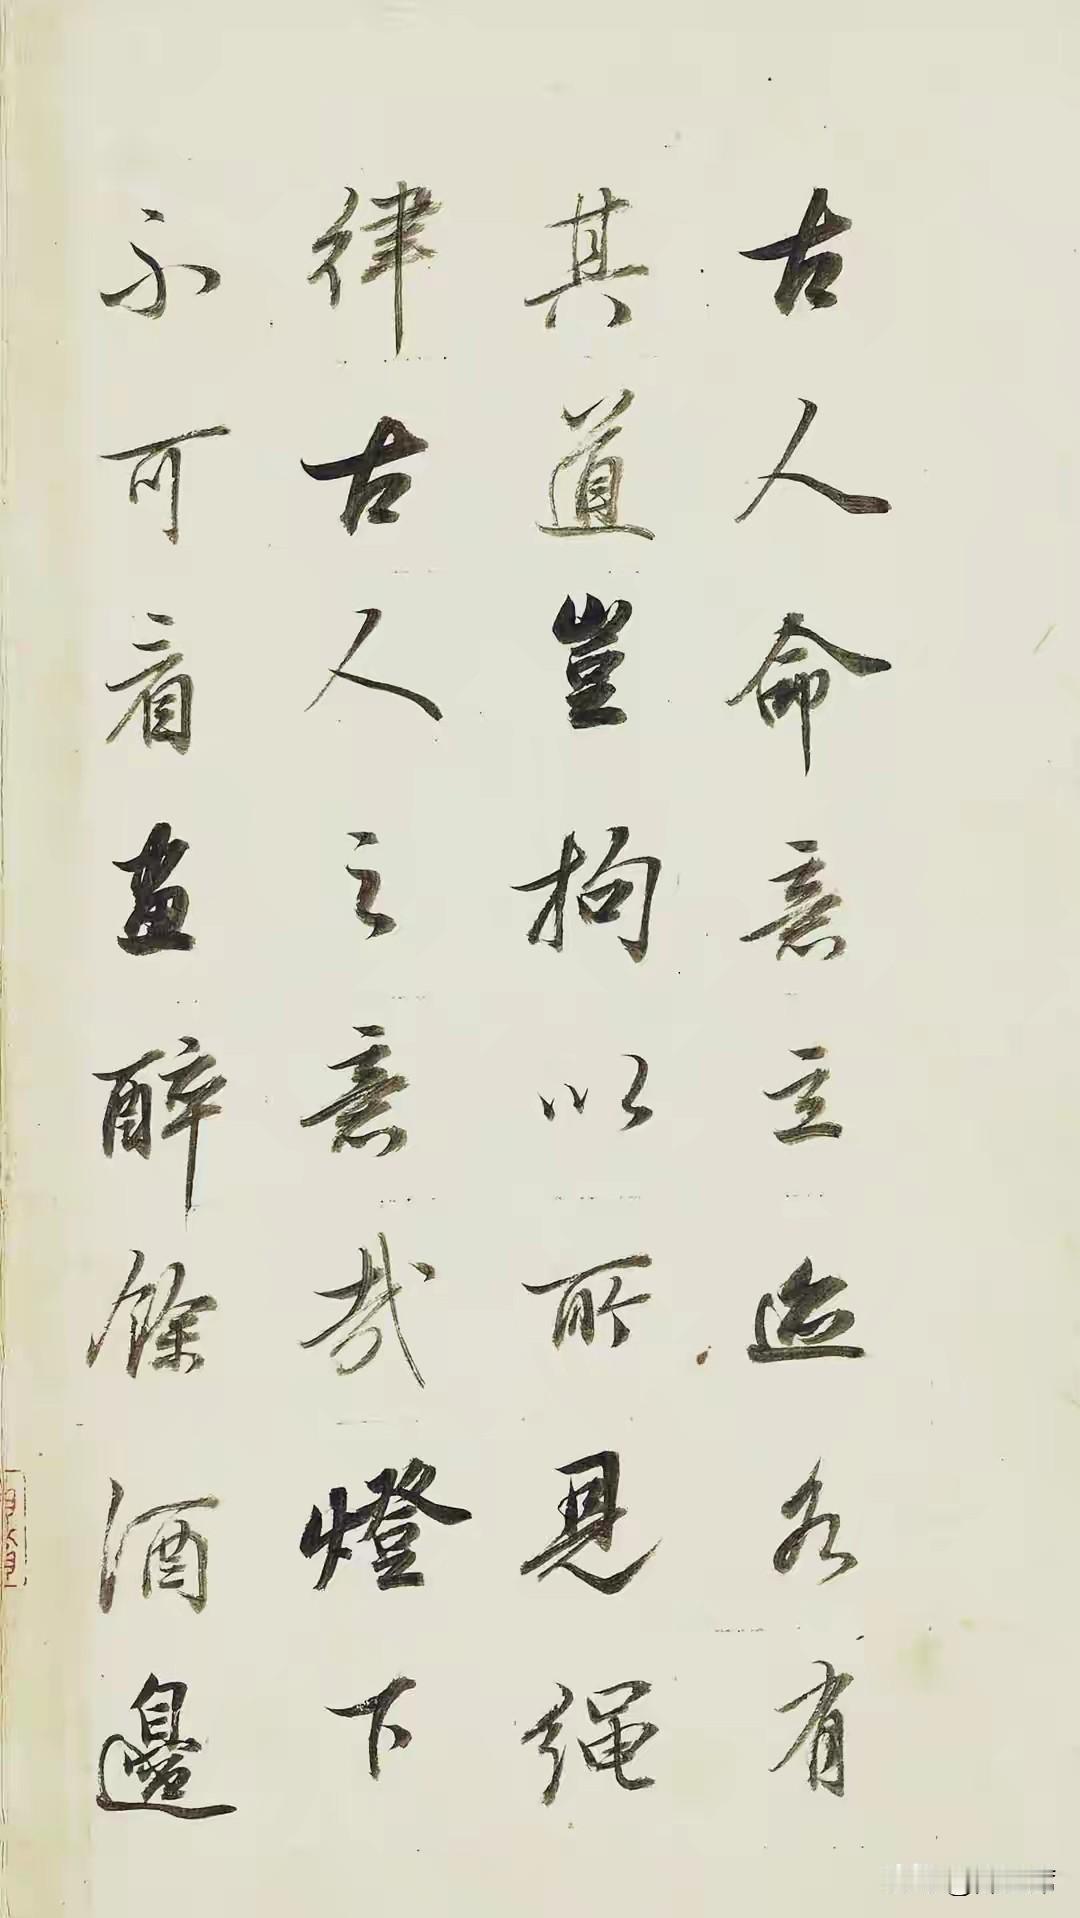 古人命意立迹各有
其道豈拘以所見繩
律古人之意哉燈下
不可看畫醉餘酒邊